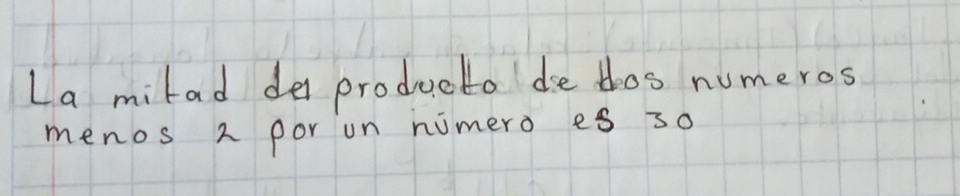 La mitad del producto de dos numeros
menos 2 por un número es 30